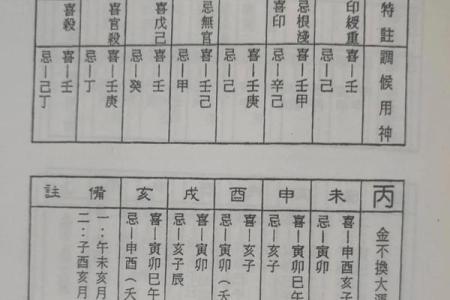 特註
印綬重
忌根淺
喜印
忌無官
喜戊己
喜官殺
喜殺
調候用神
喜—壬
忌—己
喜—壬甲
忌—辛己
喜—壬庚
忌—己
喜—壬己
忌—甲
喜—壬
忌—癸
喜—壬庚
忌—丁
喜—壬
忌—己丁
丙
金不換大運
未
喜—申酉亥子
忌—寅卯
申
喜—寅卯巳午
忌—亥子
酉
喜—亥子
忌—寅卯（夭
戌
喜—寅卯
忌—亥子辰
亥
喜—寅卯巳午
忌—申酉（夭
備註
一：午未亥月
二：子酉亥月